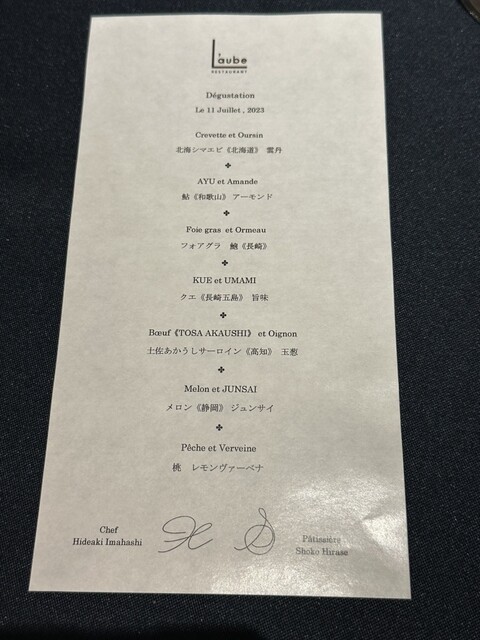 L'aube
RESTAURANT
Dégustation
Le 11 Juillet , 2023
Crevette et Oursin
北海シマエビ《北海道》 雲丹
AYU et Amande
鮎《和歌山》 アーモンド
Foie gras et Ormeau
フォアグラ 鮑《長崎》
KUE et UMAMI
クエ《長崎五島》 旨味
Bœuf《TOSA AKAUSHI》 et Oignon
土佐あかうしサーロイン《高知》 玉葱
Melon et JUNSAI
メロン《静岡》 ジュンサイ
Pêche et Verveine
桃 レモンヴァーベナ
Chef
Hideaki Imahashi
Pâtissière
Shoko Hirase